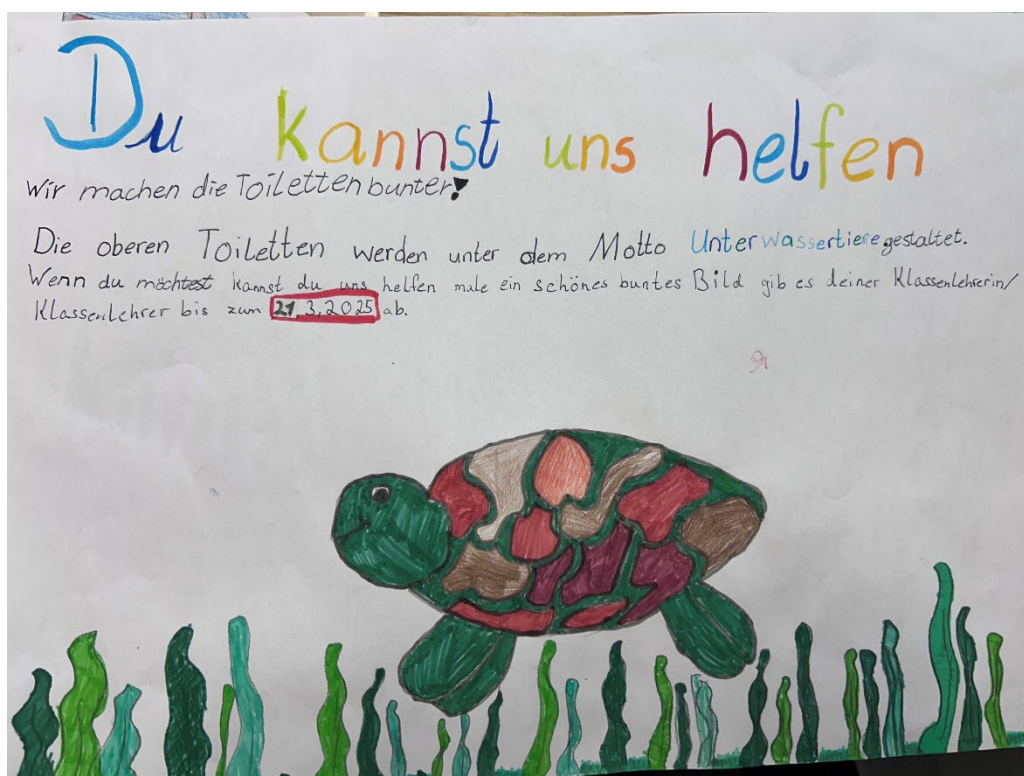 Du kannst uns helfen
Wir machen die Toiletten bunter!
Die oberen Toiletten werden unter dem Motto Unterwassertiere gestaltet.
Wenn du möchtest kannst du uns helfen male ein schönes buntes Bild gib es deiner Klassenlehrerin/
Klassenlehrer bis zum 21.3.2025 ab.